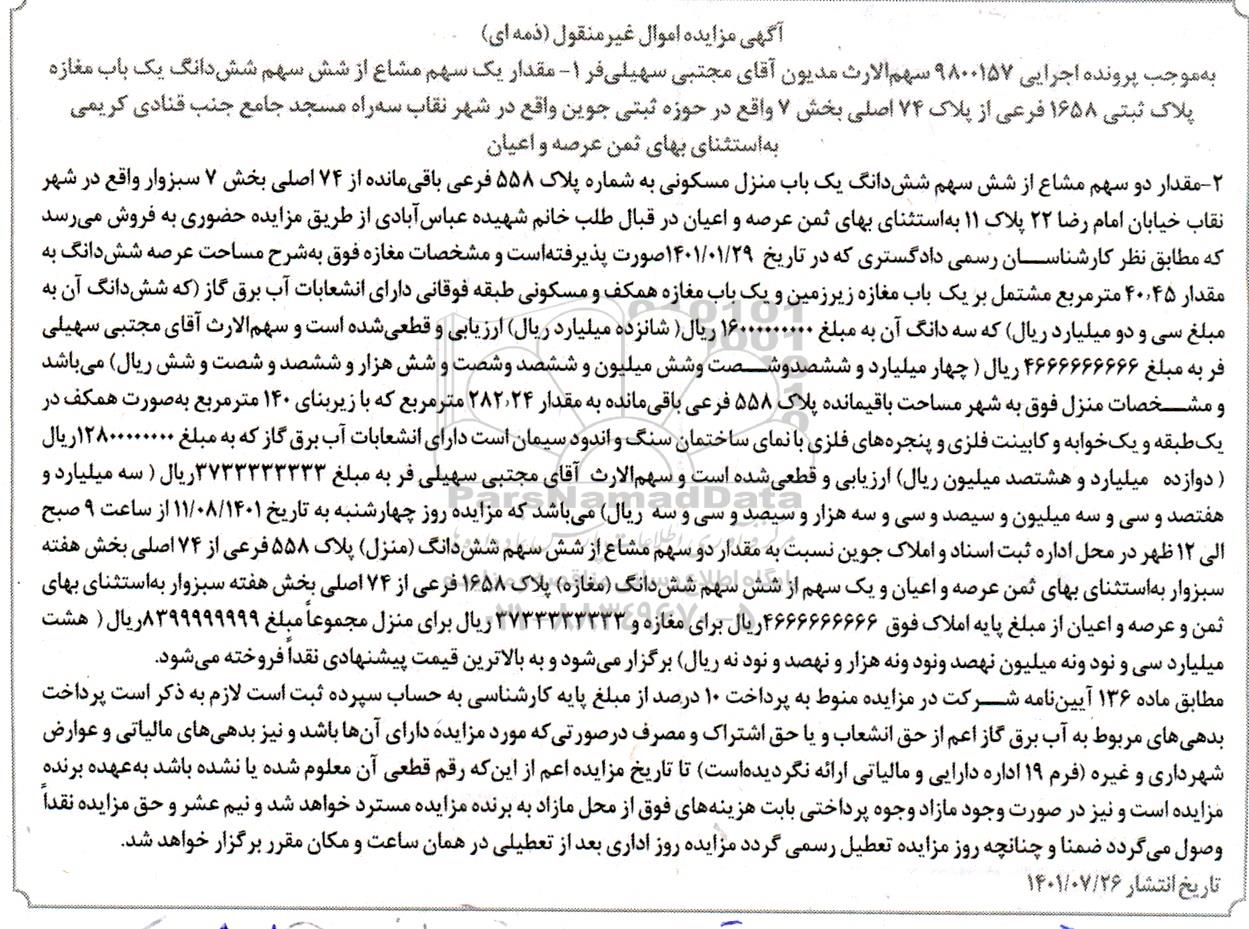 آگهی مزایده اموال غیرمنقول (ذمه ای)
به‌موجب پرونده اجرایی ۹۸۰۰۱۵۷ سهم‌الارث مدیون آقای مجتبی سهیلی‌فر ۱- مقدار یک سهم مشاع از شش سهم شش‌دانگ یک باب مغازه
پلاک ثبتی ۱۶۵۸ فرعی از پلاک ۷۴ اصلی بخش ۷ واقع در حوزه ثبتی جوین واقع در شهر نقاب سه‌راه مسجد جامع جنب قنادی کریمی
به‌استثنای بهای ثمن عرصه و اعیان
۲-مقدار دو سهم مشاع از شش سهم شش‌دانگ یک باب منزل مسکونی به شماره پلاک ۵۵۸ فرعی باقی‌مانده از ۷۴ اصلی بخش ۷ سبزوار واقع در شهر
نقاب خیابان امام رضا ۲۲ پلاک ۱۱ به‌استثنای بهای ثمن عرصه و اعیان در قبال طلب خانم شهیده عباس‌آبادی از طریق مزایده حضوری به فروش می‌رسد
که مطابق نظر کارشناسان رسمی دادگستری که در تاریخ ۱۴۰۱/۰۱/۲۹صورت پذیرفته‌است و مشخصات مغازه فوق به‌شرح مساحت عرصه شش‌دانگ به
مقدار ۴۰٫۴۵ مترمربع مشتمل بر یک باب مغازه زیرزمین و یک باب مغازه همکف و مسکونی طبقه فوقانی دارای انشعابات آب برق گاز (که شش‌دانگ آن به
مبلغ سی و دو میلیارد ریال) که سه دانگ آن به مبلغ ۱۶۰۰۰۰۰۰۰۰۰ ریال( شانزده میلیارد ریال) ارزیابی و قطعی‌شده است و سهم‌الارث آقای مجتبی سهیلی
فر به مبلغ ۴۶۶۶۶۶۶۶۶۶ ریال ( چهار میلیارد و ششصدوشصت وشش میلیون و ششصد وشصت و شش هزار و ششصد و شصت و شش ریال) می‌باشد
و مشخصات منزل فوق به شهر مساحت باقیمانده پلاک ۵۵۸ فرعی باقی‌مانده به مقدار ۲۸۲٫۲۴ مترمربع که با زیربنای ۱۴۰ مترمربع به‌صورت همکف در
یک‌طبقه و یک‌خوابه و کابینت فلزی و پنجره‌های فلزی با نمای ساختمان سنگ و اندود سیمان است دارای انشعابات آب برق گاز که به مبلغ ۱۲۸۰۰۰۰۰۰۰۰ریال
( دوازده میلیارد و هشتصد میلیون ریال) ارزیابی و قطعی‌شده است و سهم‌الارث آقای مجتبی سهیلی فر به مبلغ ۳۷۳۳۳۳۳۳۳۳ریال ( سه میلیارد و
هفتصد و سی و سه میلیون و سیصد و سی و سه هزار و سیصد و سی و سه ریال) می‌باشد که مزایده روز چهارشنبه به تاریخ ۱۱/۰۸/۱۴۰۱ از ساعت ۹ صبح
الی ۱۲ ظهر در محل اداره ثبت اسناد و املاک جوین نسبت به مقدار دو سهم مشاع از شش سهم شش‌دانگ (منزل) پلاک ۵۵۸ فرعی از ۷۴ اصلی بخش هفته
سبزوار به‌استثنای بهای ثمن عرصه و اعیان و یک سهم از شش سهم شش‌دانگ (مغازه) پلاک ۱۶۵۸ فرعی از ۷۴ اصلی بخش هفته سبزوار به‌استثنای بهای
ثمن و عرصه و اعیان از مبلغ پایه املاک فوق ۴۶۶۶۶۶۶۶۶۶ریال برای مغازه و ۳۷۳۳۳۳۳۳۳۳ ریال برای منزل مجموعاً مبلغ ۸۳۹۹۹۹۹۹۹۹ریال ( هشت
میلیارد سی و نود ونه میلیون نهصد ونود ونه هزار و نهصد و نود نه ریال) برگزار می‌شود و به بالاترین قیمت پیشنهادی نقداً فروخته می‌شود.
مطابق ماده ۱۳۶ آیین‌نامه شرکت در مزایده منوط به پرداخت ۱۰ درصد از مبلغ پایه کارشناسی به حساب سپرده ثبت است لازم به ذکر است پرداخت
بدهی‌های مربوط به آب برق گاز اعم از حق انشعاب و یا حق اشتراک و مصرف درصورتی‌که مورد مزایده دارای آن‌ها باشد و نیز بدهی‌های مالیاتی و عوارض
شهرداری و غیره (فرم ۱۹ اداره دارایی و مالیاتی ارائه نگردیده‌است) تا تاریخ مزایده اعم از این‌که رقم قطعی آن معلوم شده یا نشده باشد به‌عهده برنده
مزایده است و نیز در صورت وجود مازاد وجوه پرداختی بابت هزینه‌های فوق از محل مازاد به برنده مزایده مسترد خواهد شد و نیم عشر و حق مزایده نقداً
وصول می‌گردد ضمنا و چنانچه روز مزایده تعطیل رسمی گردد مزایده روز اداری بعد از تعطیلی در همان ساعت و مکان مقرر برگزار خواهد شد.
تاریخ انتشار ۱۴۰۱/۰۷/۲۶
ParsNamadData